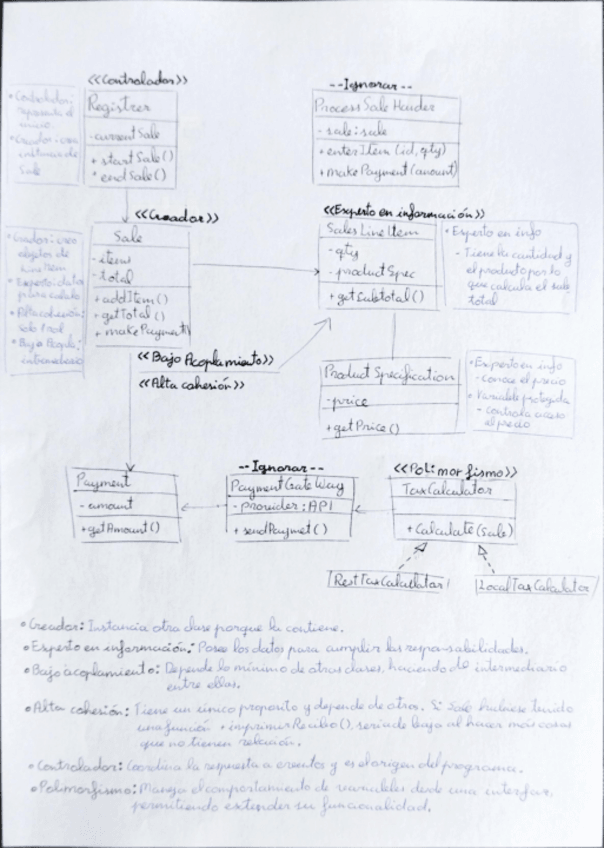 <<Controlador>>
Registrer
- currentSale
+ startSale()
* endSale()
• Controlador:
representa el
inicio.
• Creador: crea
instancias de
Sale
--Ignorar--
ProcessSaleHander
- sale: sale
+ enterItem (id, qty)
+ makePayment (amount)
<<Creador>>
Sale
- items
- total
+ addItem()
+ getTotal()
+ makePayment()
• Creador: crea
objetos de
LineItem
• Experto: datos
para calculo
• Alta cohesión:
solo 1 rol
• Bajo Acopla:
intermediario
<<Experto en información>>
SalesLineItem
- qty
- productSpec
+ getSubtotal()
• Experto en info
- Tiene la cantidad y
el producto por lo
que calcula el sub
total
<<Bajo Acoplamiento>>
<<Alta cohesión>>
ProductSpecification
- price
+ getPrice()
• Experto en info
- conoce el precio
• Variable protegida
- controla acceso
el precio
Payment
- amount
+ getAmount()
--Ignorar--
PaymentGateWay
- provider: API
+ sendPaymet()
<<Polimorfismo>>
TaxCalculator
+ Calculate (Sale)
RestTaxCalculator
LocalTaxCalculator
• Creador: Instancia otra clase porque la contiene.
• Experto en información: Posee los datos para cumplir las responsabilidades.
• Bajo acoplamiento: Depende lo mínimo de otras clases, haciendo de intermediario
entre ellas.
• Alta cohesión: Tiene un único proposito y depende de otros. Si Sale hubiese tenido
una función + imprimirRecibo(), sería de baja al hacer más cosas
que no tienen relación.
• Controlador: Coordina la respuesta a eventos y es el origen del programa.
• Polimorfismo: Maneja el comportamiento de variables desde una interfaz,
permitiendo extender su funcionalidad.